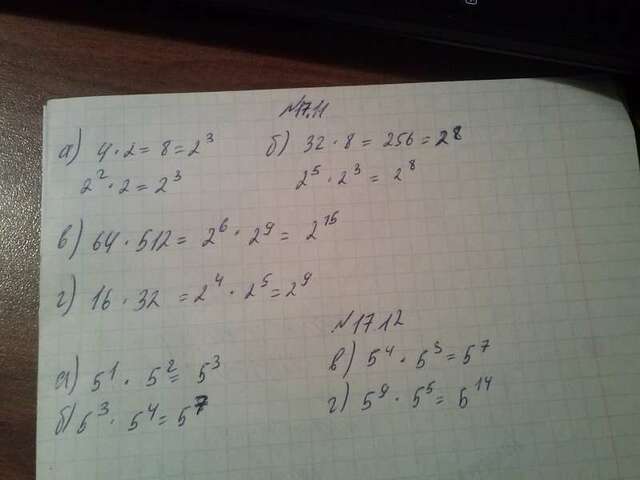 №17.11
а) 4·2=8=2³ б) 32·8=256=2⁸
2²·2=2³ 2⁵·2³=2⁸
в) 64·512=2⁶·2⁹=2¹⁵
г) 16·32=2⁴·2⁵=2⁹
№17.12
а) 5¹·5²=5³ в) 5⁴·5³=5⁷
б) 5³·5⁴=5⁷ г) 5⁹·5⁵=5¹⁴